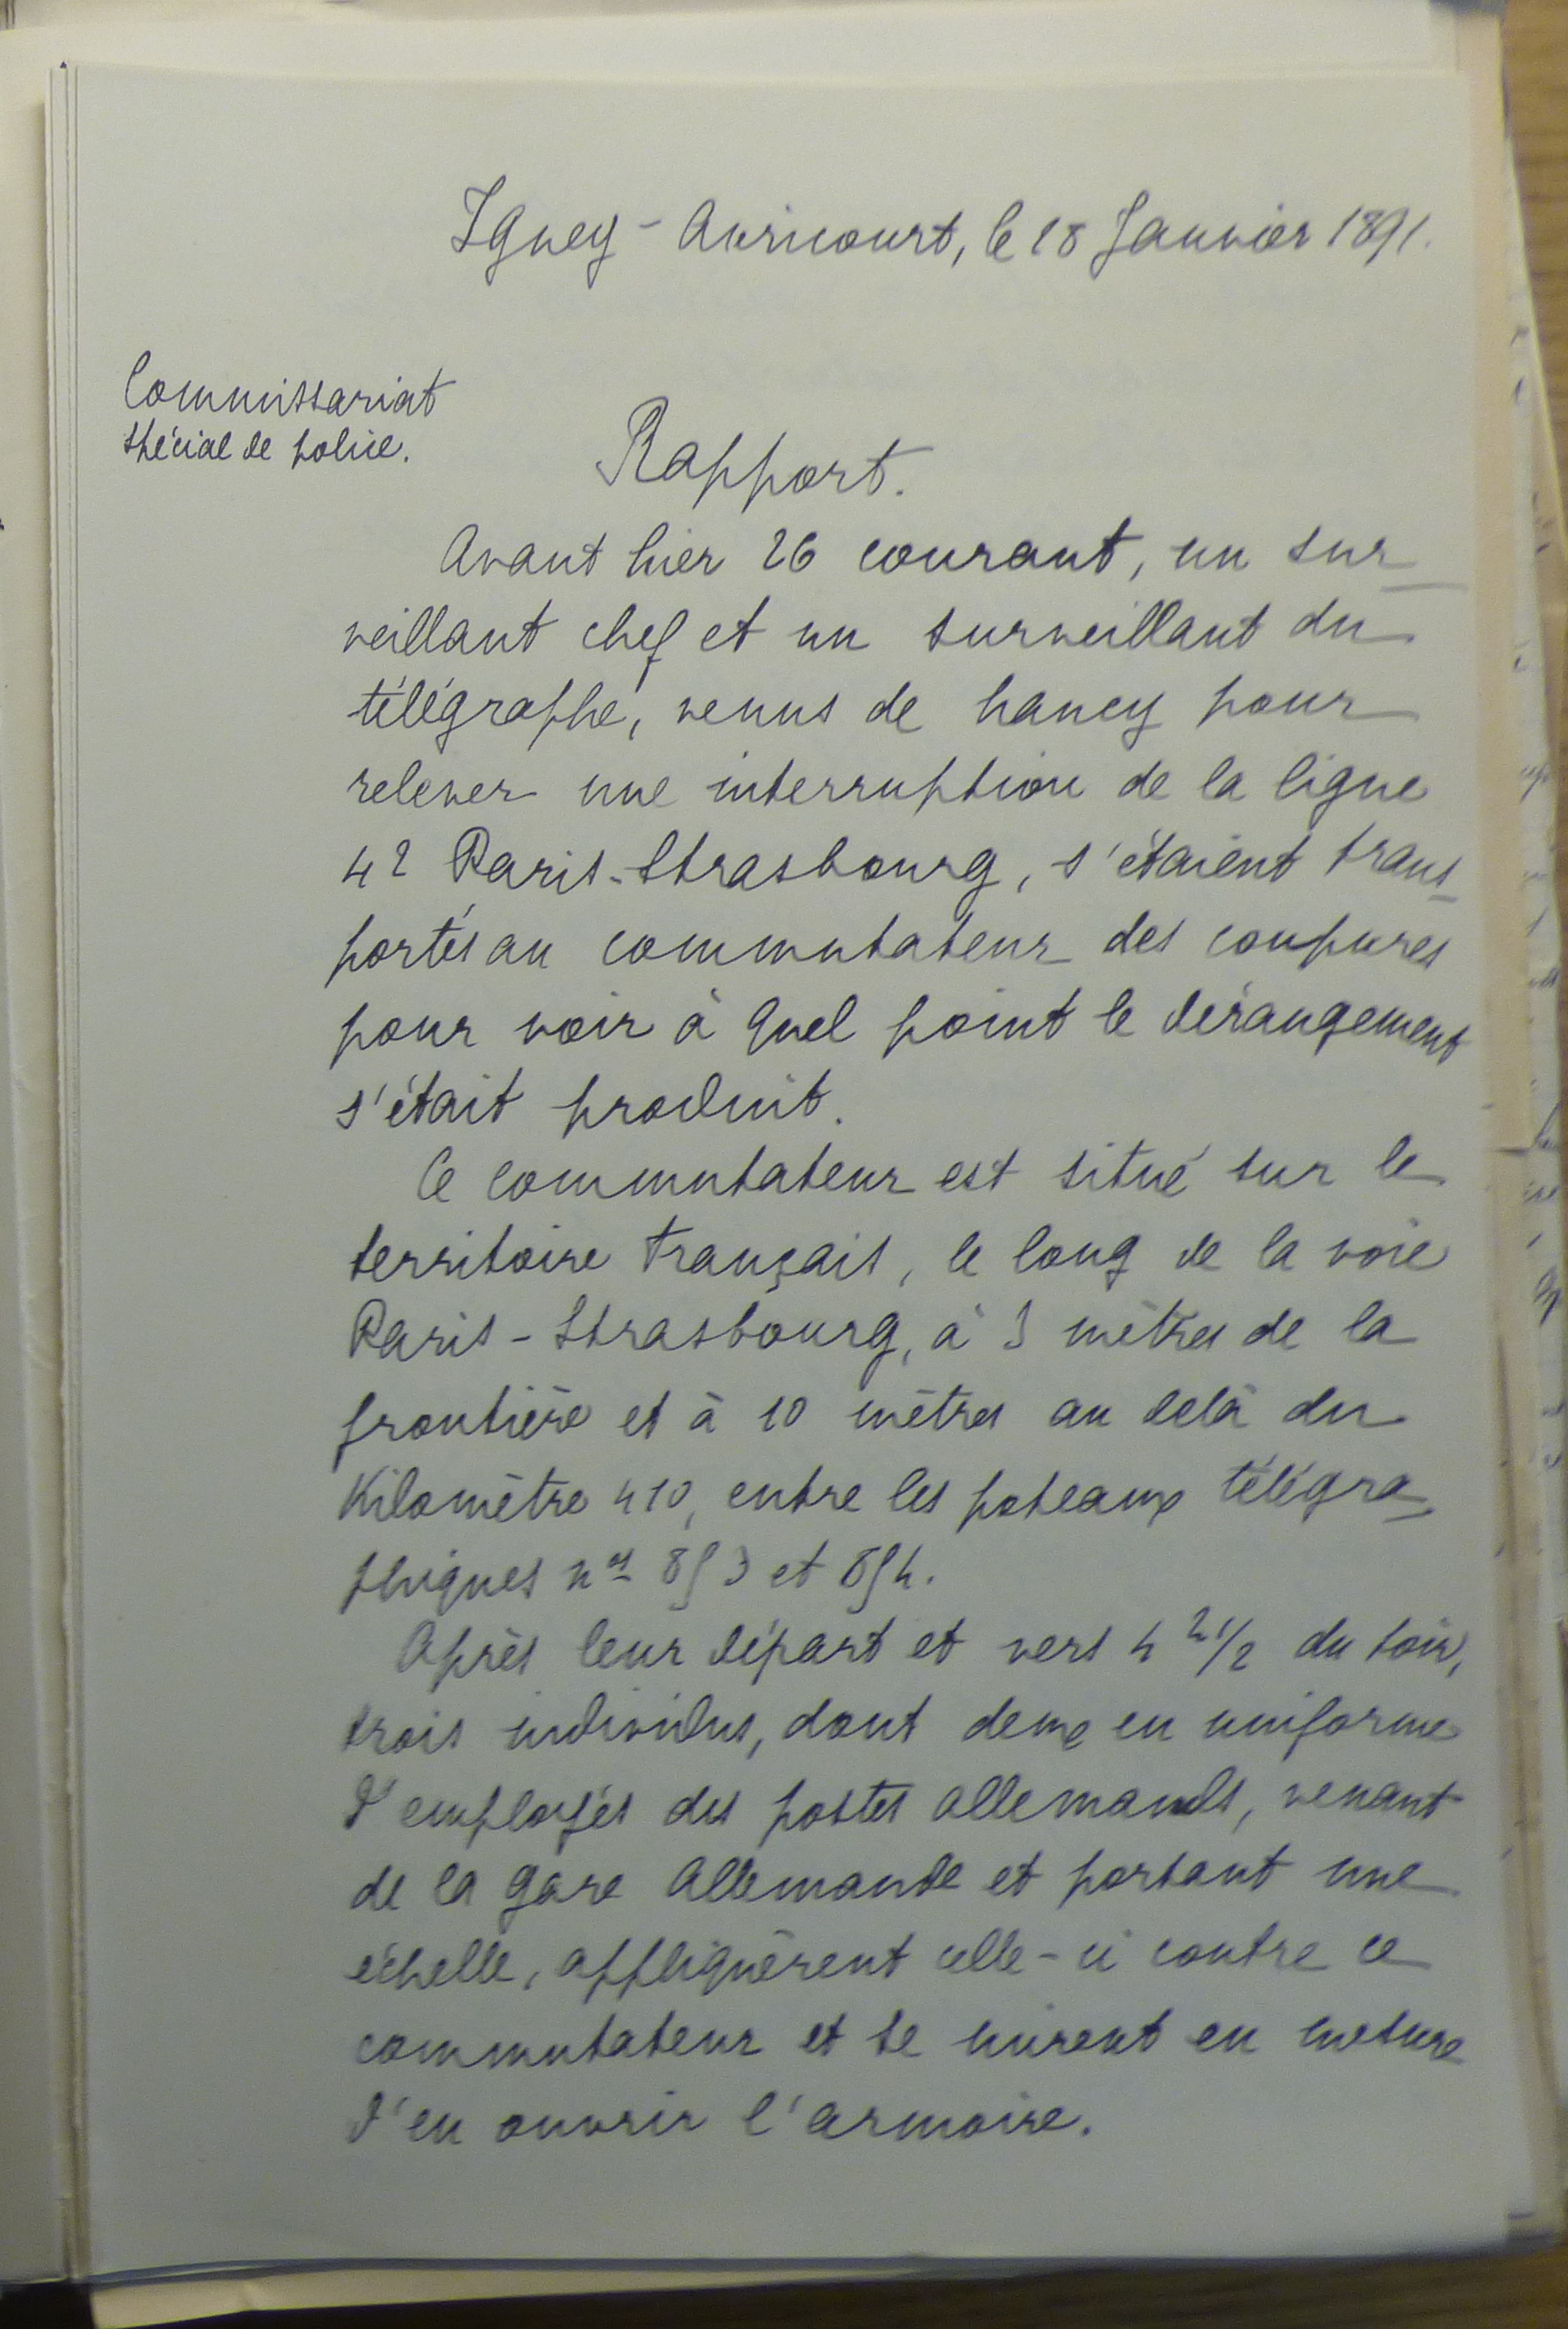 Igney-Avricourt, le 28 Janvier 1891.
Commissariat
spécial de police.
Rapport.
Avant hier 26 courant, un sur-
veillant chef et un surveillant du
télégraphe, venus de Nancy pour
relever une interruption de la ligne
42 Paris-Strasbourg, s'étaient trans-
portés au commutateur des coupures
pour voir à quel point le dérangement
s'était produit.
Ce commutateur est situé sur le
territoire français, le long de la voie
Paris-Strasbourg, à 3 mètres de la
frontière et à 10 mètres au delà du
Kilomètre 410, entre les poteaux télégra-
phiques nos 853 et 854.
Après leur départ et vers 4 h 1/2 du soir,
trois individus, dont deux en uniforme
d'employés des postes allemands, venant
de la gare Allemande et portant une
échelle, appliquèrent celle-ci contre ce
commutateur et se mirent en mesure
d'en ouvrir l'armoire.